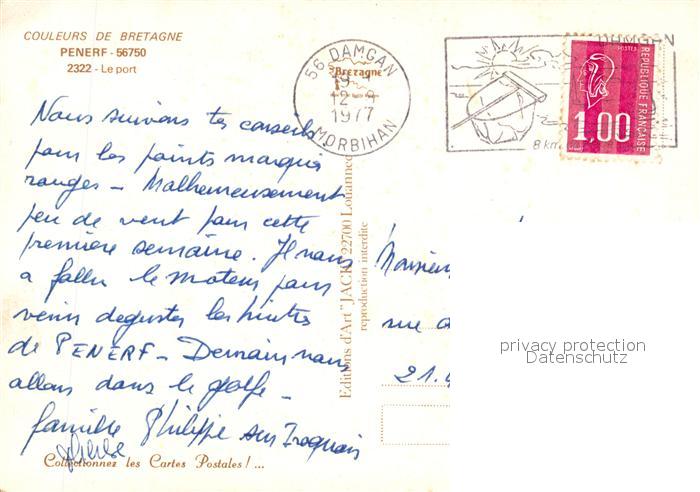 COULEURS DE BRETAGNE
PENERF - 56750
2322 - Le port
Nous suivons tes conseils
pour les points marqués
rouges - Malheureusement
peu de vent pour cette
première semaine. Il nous
a fallu le moteur pour
venir deguster les huitres
de PENERF - Demain nous
allons dans le golfe -
famille Philippe sur Iroquois
Collectionnez les Cartes Postales ! ...
Editions d'Art "JACK" 22700 Louannec
reproduction interdite
Bretagne
56 DAMGAN
12-9
1977
MORBIHAN
DAMGAN
8 km
POSTES
REPUBLIQUE FRANÇAISE
1,00
Monsieur
rue
21.
privacy protection
Datenschutz